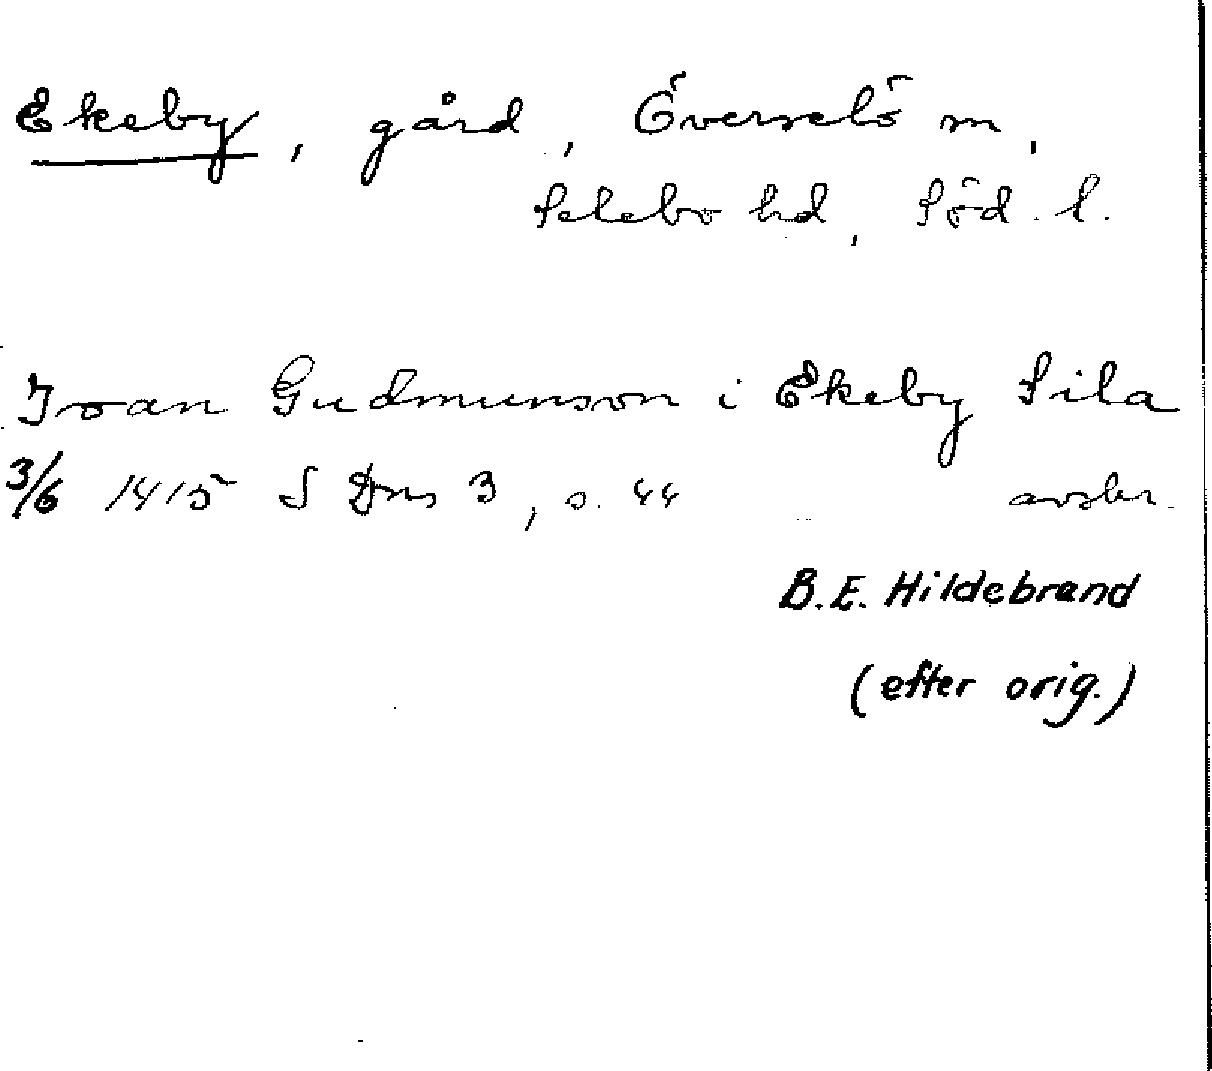 Ekeby, gård, Överselö sn,
Selebo hd, Söd. l.
Joan Gudmunson i Ekeby Sila
3/6 1415 S Dns 3, s. 44 avskr.
B.E. Hildebrand
(efter orig.)